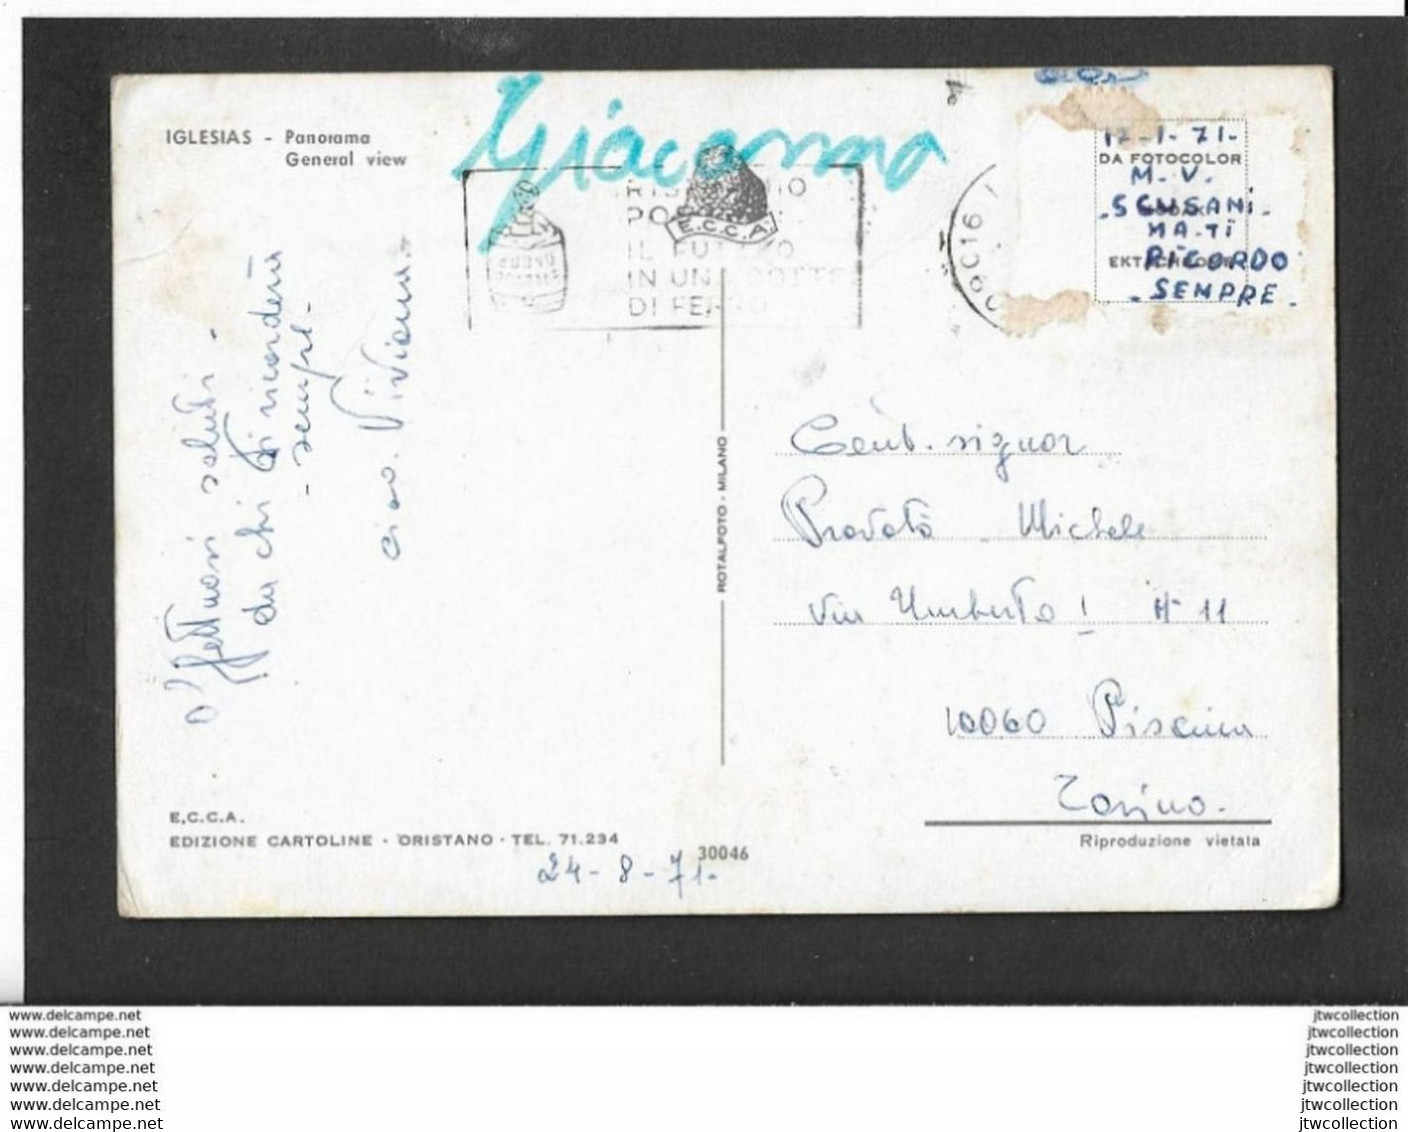 IGLESIAS - Panorama
General view
Giacomma
12-1-71-
DA FOTOCOLOR
M.V.
- SCUSANI -
MA-TI
RICORDO
- SEMPRE -
IL FUTURO
DI FERRO
E.C.C.A.
Affettuosi saluti -
da chi ti ricorderà
- sempre -
ciao. Viviana.
ROTALFOTO - MILANO
signor
Michele
Via Umberto I N 11
10060 Piscina
Torino.
Riproduzione vietata
E.C.C.A.
EDIZIONE CARTOLINE - ORISTANO - TEL. 71.234
30046
24-8-71-
www.delcampe.net
www.delcampe.net
www.delcampe.net
www.delcampe.net
www.delcampe.net
www.delcampe.net
www.delcampe.net
jtwcollection
jtwcollection
jtwcollection
jtwcollection
jtwcollection
jtwcollection
jtwcollection